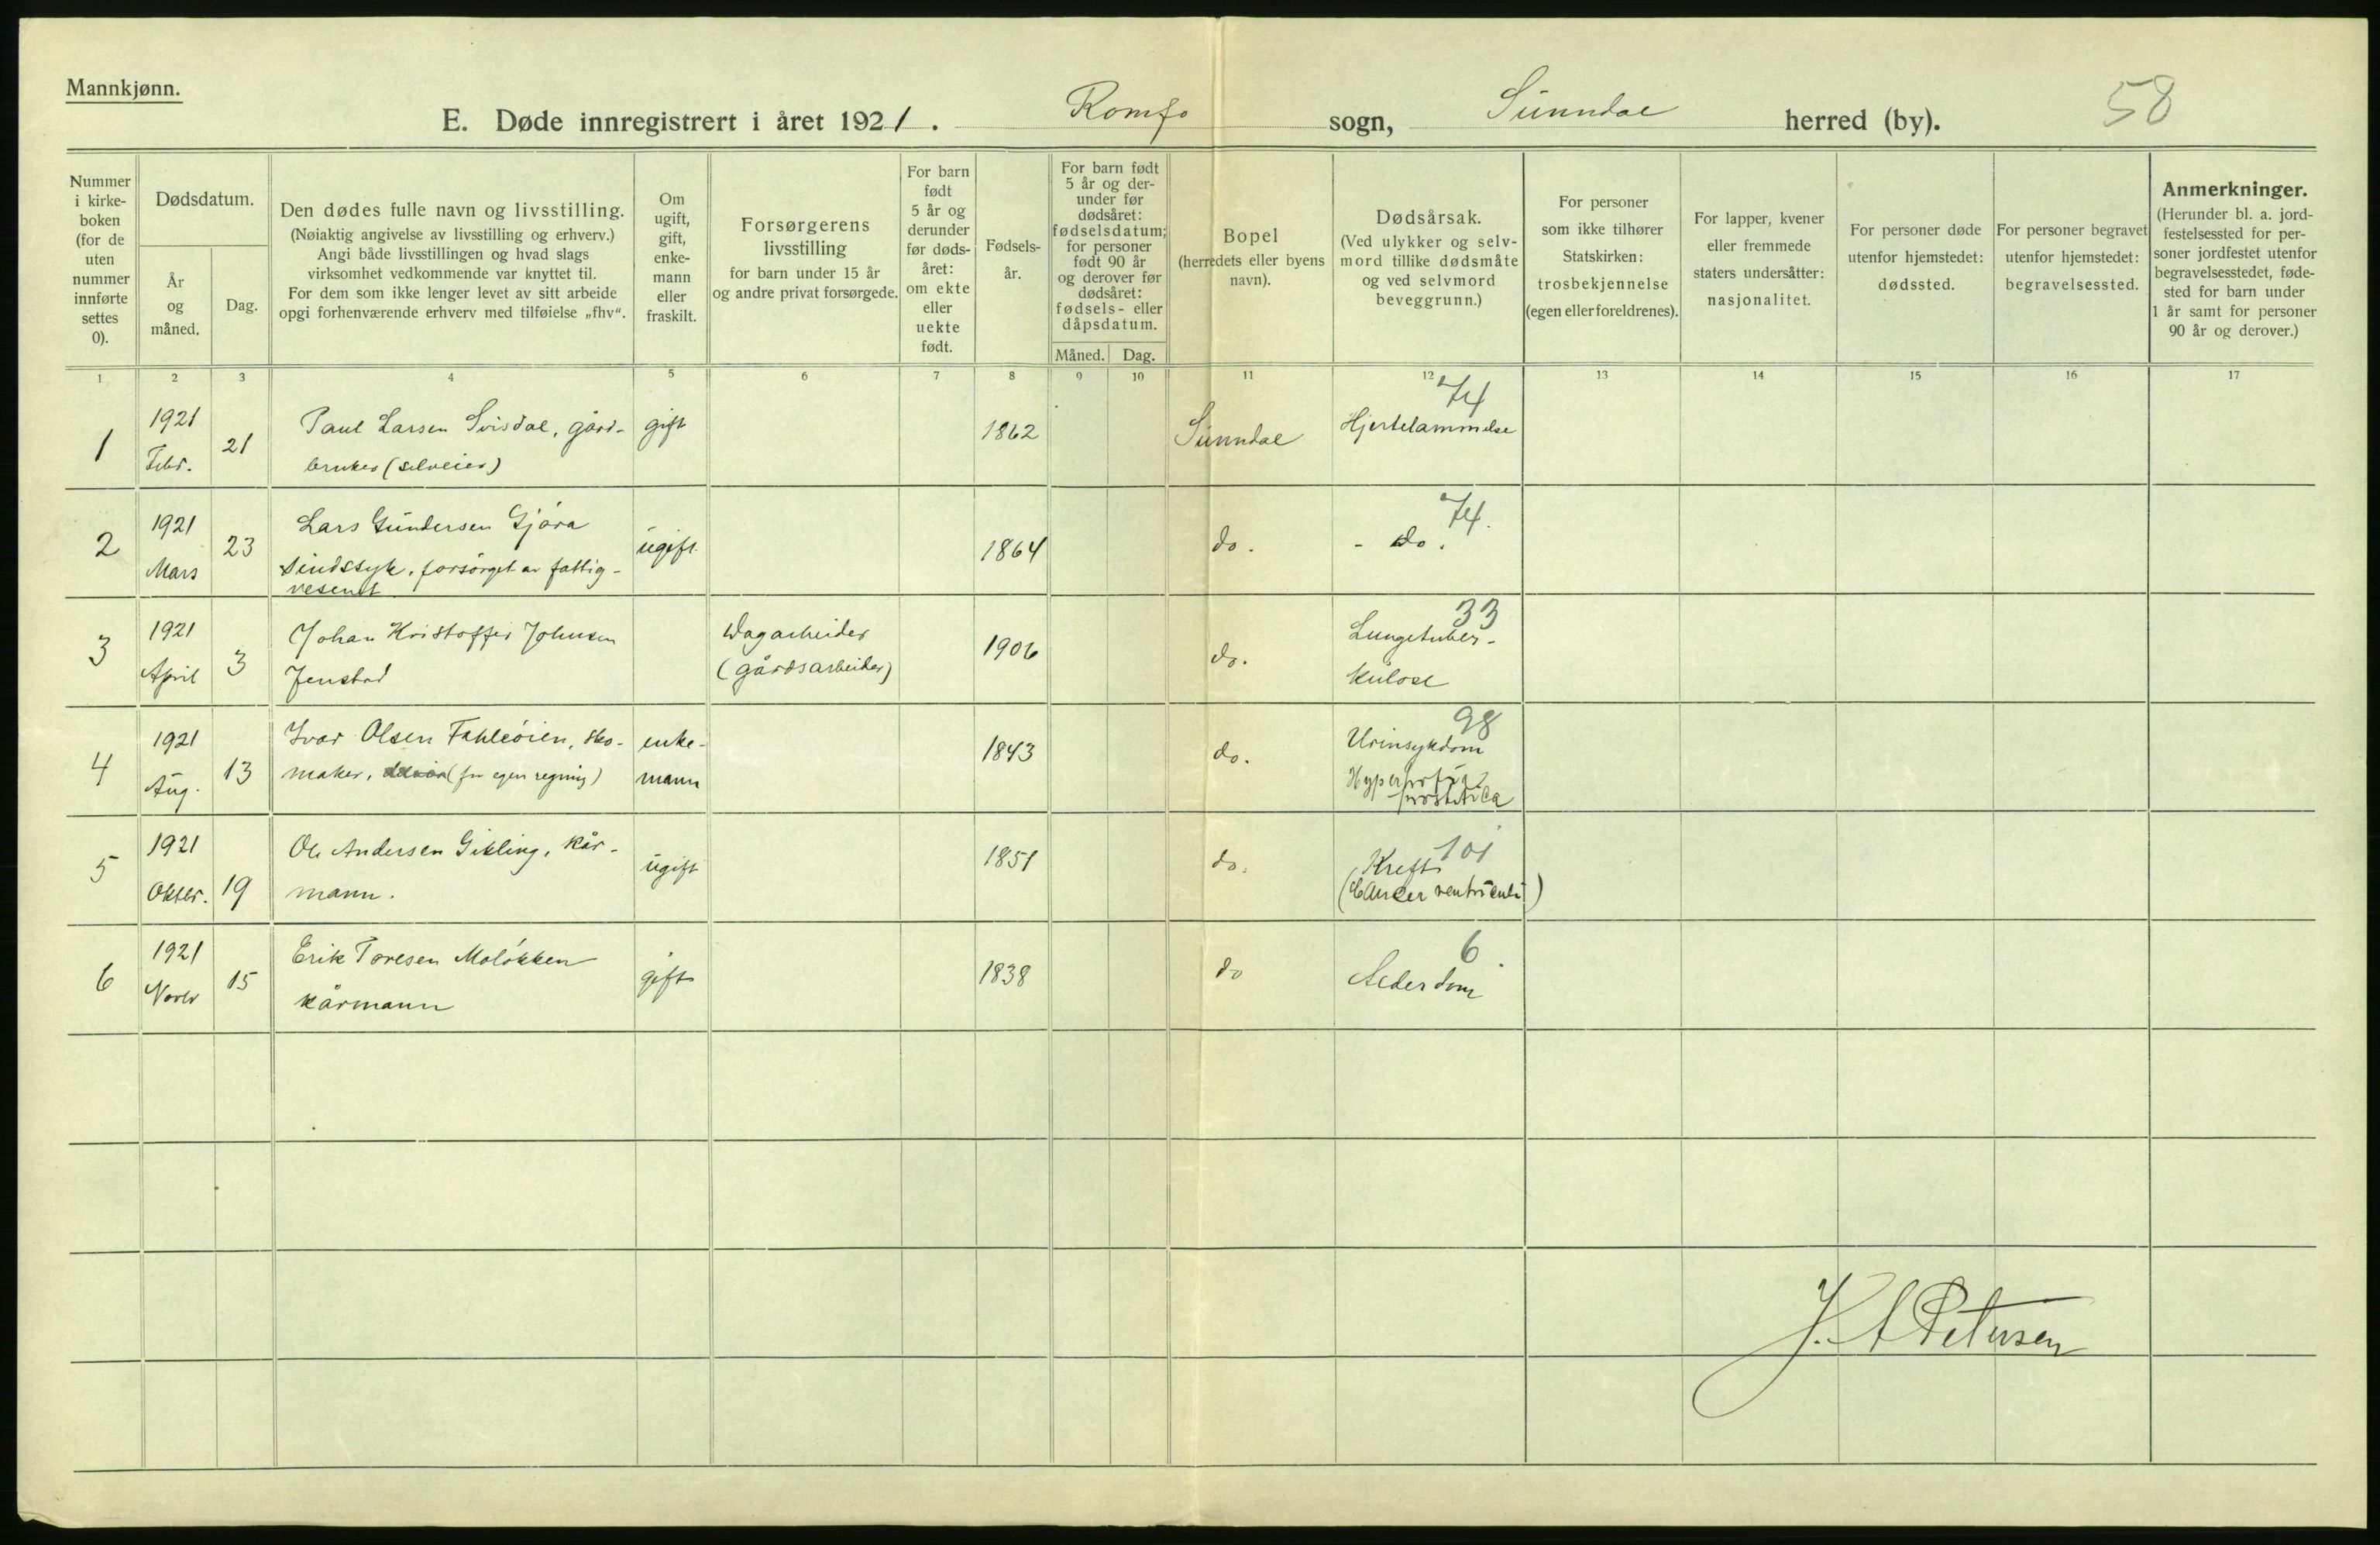 Mannkjønn.
E. Døde innregistrert i året 1921. Romfo sogn, Sunndal herred (by). 58
Nummer i kirke-boken (for de uten nummer innførte settes 0).
Dødsdatum.
År og måned.
Dag.
Den dødes fulle navn og livsstilling.
(Nøiaktig angivelse av livsstilling og erhverv.)
Angi både livsstillingen og hvad slags
virksomhet vedkommende var knyttet til.
For dem som ikke lenger levet av sitt arbeide
opgi forhenværende erhverv med tilføielse „fhv“.
Om ugift, gift, enke-mann eller fraskilt.
Forsørgerens
livsstilling
for barn under 15 år
og andre privat forsørgede.
For barn født 5 år og derunder før døds-året: om ekte eller uekte født.
Fødsels-år.
For barn født 5 år og der-under før dødsåret: fødselsdatum; for personer født 90 år og derover før dødsåret: fødsels- eller dåpsdatum.
Måned. Dag.
Bopel
(herredets eller byens navn).
Dødsårsak.
(Ved ulykker og selv-mord tillike dødsmåte og ved selvmord beveggrunn.)
For personer som ikke tilhører Statskirken: trosbekjennelse (egen eller foreldrenes).
For lapper, kvener eller fremmede staters undersåtter: nasjonalitet.
For personer døde utenfor hjemstedet: dødssted.
For personer begravet utenfor hjemstedet: begravelsessted.
Anmerkninger.
(Herunder bl. a. jord-festelsessted for per-soner jordfestet utenfor begravelsesstedet, føde-sted for barn under 1 år samt for personer 90 år og derover.)
1 2 3 4 5 6 7 8 9 10 11 12 13 14 15 16 17
1 1921 Febr. 21 Paul Larsen Svisdal, gård-
bruker (selveier) gift 1862 Sunndal 74 Hjertelammelse
2 1921 Mars 23 Lars Gundersen Gjøra
sindssyk, forsørget av fattig-
vesenet ugift 1864 do. 74. - do.
3 1921 April 3 Johan Kristoffer Johnsen
Jenstad Dagarbeider
(gårdsarbeider) 1906 do. 33 Lungetuber-
kulose
4 1921 Aug. 13 Ivar Olsen Fahleøien, sko-
maker, (for egen regning) enke-
mann 1843 do. 98 Urinsykdom
Hypertrofia
prostatica
5 1921 Oktbr. 19 Ole Andersen Gikling, kår-
mann. ugift 1851 do. 101 Kreft
(Cancer ventriculi)
6 1921 Novbr 15 Erik Toresen Moløkken
kårmann gift 1838 do 6. Alderdom
J. A Petersen